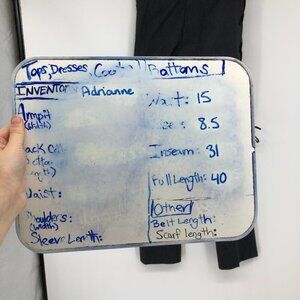 Tops, Dresses, Coats
INVENTORY Adrianne
Armpit
(width)
Waist:
Shoulders:
(width)
Sleeve Length:
Bottoms
Waist: 15
8.5
Inseam: 31
Full Length: 40
Other
Belt Length:
Scarf length: